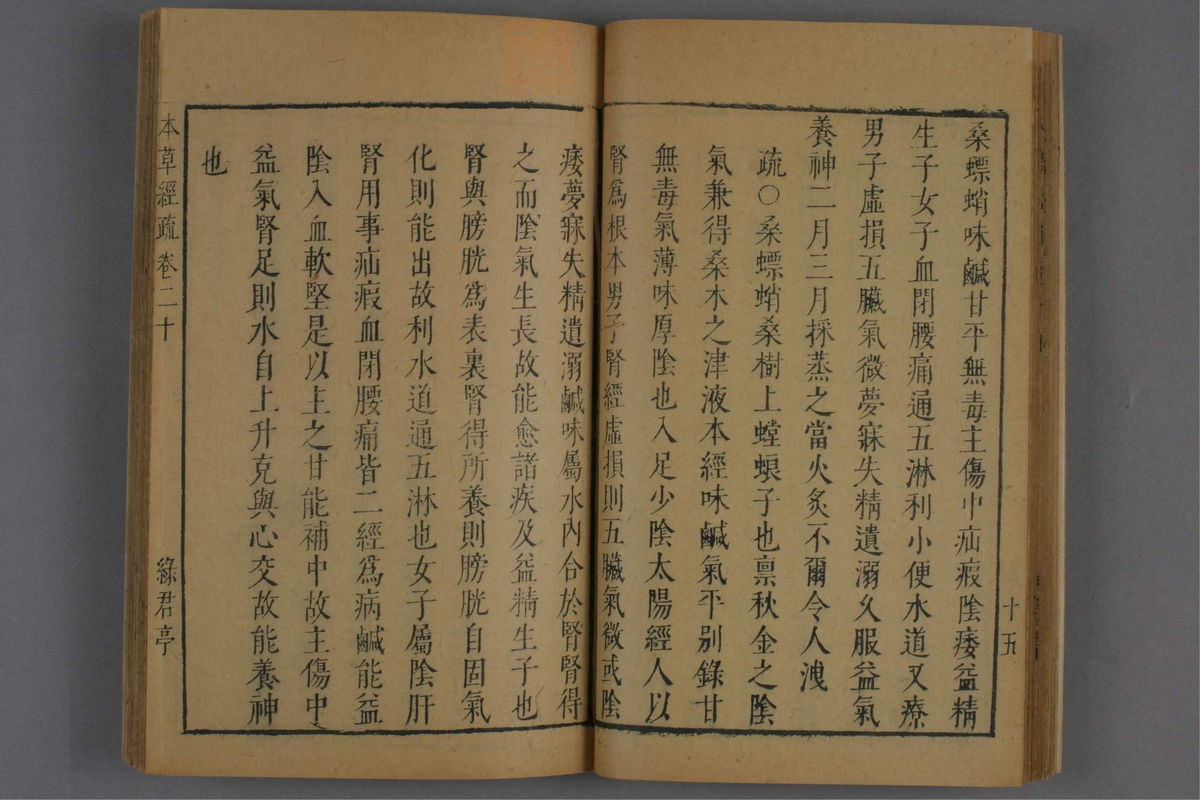 桑螵蛸味鹹甘平無毒主傷中疝瘕陰痿益精
生子女子血閉腰痛通五淋利小便水道又療
男子虛損五臟氣微夢寐失精遺溺久服益氣
養神二月三月採蒸之當火炙不爾令人洩
疏○桑螵蛸桑樹上螳蜋子也禀秋金之陰
氣兼得桑木之津液本經味鹹氣平別錄甘
無毒氣薄味厚陰也入足少陰太陽經人以
腎為根本男子腎經虛損則五臟氣微或陰
痿夢寐失精遺溺鹹味屬水內合於腎腎得
之而陰氣生長故能愈諸疾及益精生子也
腎與膀胱為表裏腎得所養則膀胱自固氣
化則能出故利水道通五淋也女子屬陰肝
腎用事疝瘕血閉腰痛皆二經為病鹹能益
陰入血軟堅是以主之甘能補中故主傷中
益氣腎足則水自上升克與心交故能養神
也
本草經疏 卷二十 綠君亭
十五